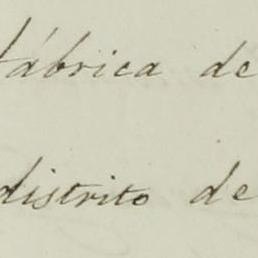 fábrica de
distrito de